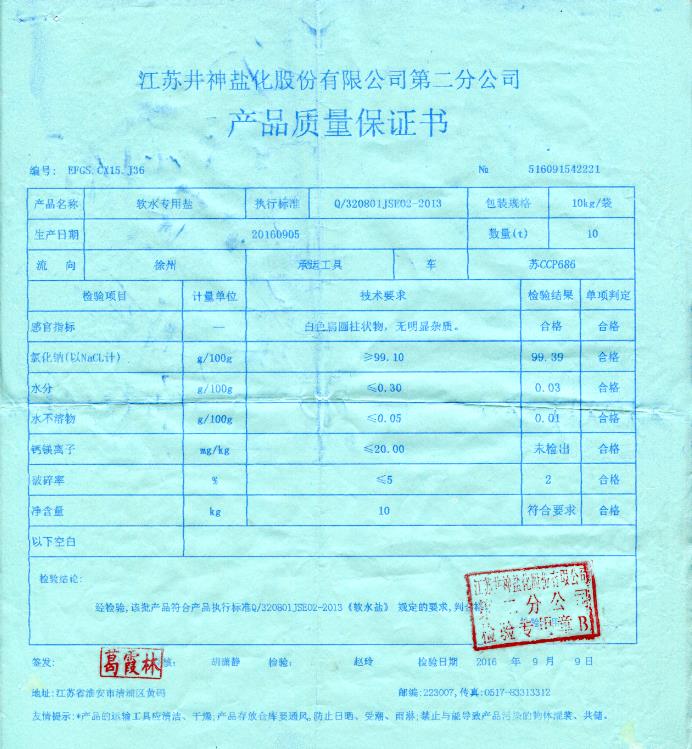 江苏井神盐化股份有限公司第二分公司
产品质量保证书
编号: EFGS.CX15.J36 № 516091542221
产品名称 软水专用盐 执行标准 Q/320801JSE02-2013 包装规格 10kg/袋
生产日期 20160905 数量(t) 10
流 向 徐州 承运工具 车 苏CCP686
检验项目 计量单位 技术要求 检验结果 单项判定
感官指标 — 白色扁圆柱状物,无明显杂质。 合格 合格
氯化钠(以NaCL计) g/100g ≥99.10 99.39 合格
水分 g/100g ≤0.30 0.03 合格
水不溶物 g/100g ≤0.05 0.01 合格
钙镁离子 mg/kg ≤20.00 未检出 合格
破碎率 % ≤5 2 合格
净含量 kg 10 符合要求 合格
以下空白
检验结论:
经检验,该批产品符合产品执行标准Q/320801JSE02-2013《软水盐》 规定的要求,判
江苏井神盐化股份有限公司
第二分公司
检验专用章B
签发: 葛霞林 核: 胡潇静 检验: 赵玲 检验日期 2016 年 9 月 9 日
地址:江苏省淮安市清浦区黄码 邮编:223007,传真:0517-83313312
友情提示:*产品的运输工具应清洁、干燥;产品存放仓库要通风,防止日晒、受潮、雨淋;禁止与能导致产品污染的物体混装、共储。